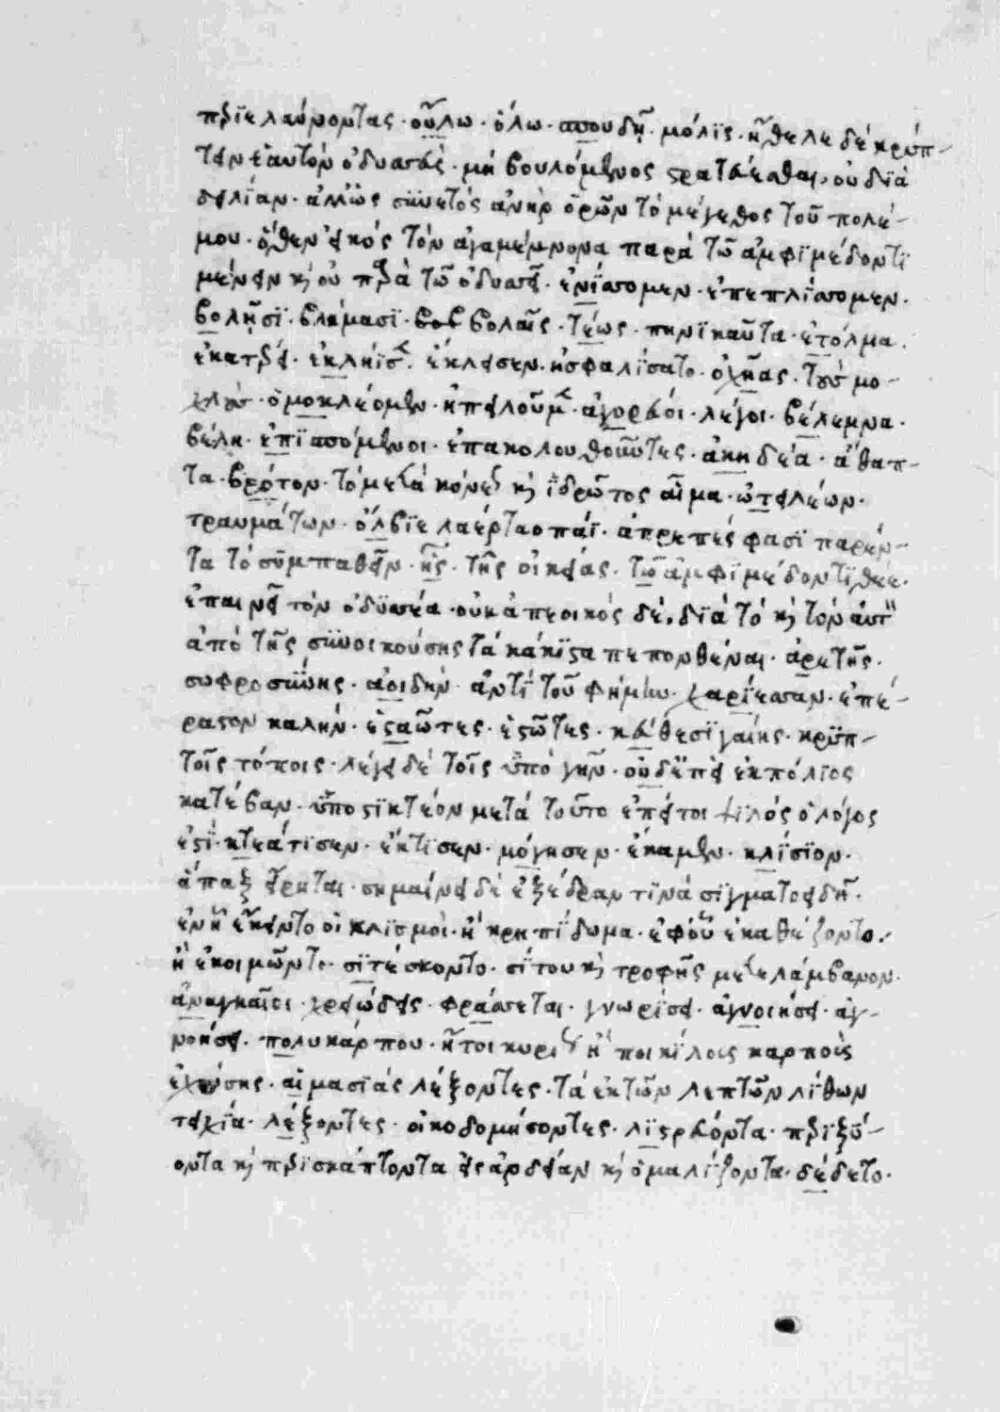 περιελαύνοντας· οὔλω· ὅλω· σπουδῇ· μόλις· ἤθελε δὲ κρύπ-
τειν ἑαυτὸν ὀδυσσεὺς· μὴ βουλόμενος στρατεύεσθαι, οὐ διὰ
δειλίαν· ἀλλ' ὡς συνετὸς ἀνὴρ ὁρῶν τὸ μέγεθος τοῦ πολέ-
μου· ὅθεν εἰκὸς τὸν ἀγαμέμνονα παρὰ τῶ ἀμφιμέδοντι
μένειν καὶ οὐ παρὰ τῶ ὀδυσσεῖ· ἐνίσπομεν· ἐπεπλήσσομεν·
βολῇσι· βλέμασι· βολαῖς· τέως· πηνικαῦτα· ἐτόλμα·
ἐκαρτέρει· ἐκλήισεν· ἔκλεισεν· ἠσφαλίσατο· ὀχῆας· τοὺς μο-
χλοὺς· ὁμοκλέομεν· ἠπειλοῦμεν· ἀγορευόι· λέγοι· βέλεμνα·
βέλη· ἐπισπόμενοι· ἐπακολουθοῦντες· ἀκηδέα· ἄθαπ-
τα· βρότον· τὸ μετὰ κόνεως καὶ ἱδρῶτος αἷμα· ὠτειλέων·
τραυμάτων· ὄλβιε λαέρταο πάϊ· ἀπρεπές φασι παρέν-
τα τὸ συμπαθεῖν· ἧς· τῆς οἰκείας· τῶ ἀμφιμέδοντι θέε·
ἐπαινεῖ τὸν ὀδυσσέα· οὐκ ἀπεοικὸς δὲ, διὰ τὸ καὶ τὸν αὐτὸν
ἀπὸ τῆς συνοικούσης τὰ κάκιστα πεπονθέναι· ἀρετῆς·
σωφροσύνης· ἀοιδὴν· ἀντὶ τοῦ φήμην· χαρίεσσαν· ἐπέ-
ραστον καλήν· ἑσταῶτες· ἑστῶτες· κεύθεσι γαίης· κρύπ-
τοῖς τόποις· λέγει δὲ τοῖς ὑπὸ γῆν· οἱ δ' ἐπεὶ ἐκ πόλιος
κατέβαν· ὑποστικτέον μετὰ τοῦτο ἐπεί τοι ψιλός ὁ λόγος
ἐστί· κτεάτισεν· ἔκτισεν· μόγησεν· ἔκαμεν· κλίσιον·
ἅπαξ εἴρηται· σημαίνει δὲ ἐξέδραν τινὰ σίγματοειδῆ·
ἐν ᾗ ἔκειντο οἱ κλισμοὶ· ἢ κρηπίδωμα· ἐφ' οὗ ἐκαθέζοντο·
ἢ ἐκοιμῶντο· σιτέσκοντο· σίτου καὶ τροφῆς μετελάμβανον·
ἀναγκαῖοι· χρειώδεις· φράσσεται· γνωρίσει· ἀγνοιήσει· ἀγ-
νοήσει· πολυκάρπου· ἤτοι κυρίως ἢ ποικίλοις καρποῖς
ἐχούσης· αἱμασιὰς λέξοντες· τὰ ἐκ τῶν λεπτῶν λίθων
τειχία· λέξοντες· οἰκοδομήσοντες· λιστρεύοντα· περιξύ-
οντα καὶ περισκάπτοντα εἰς ἀρδείαν καὶ ὁμαλίζοντα· δέδετο·